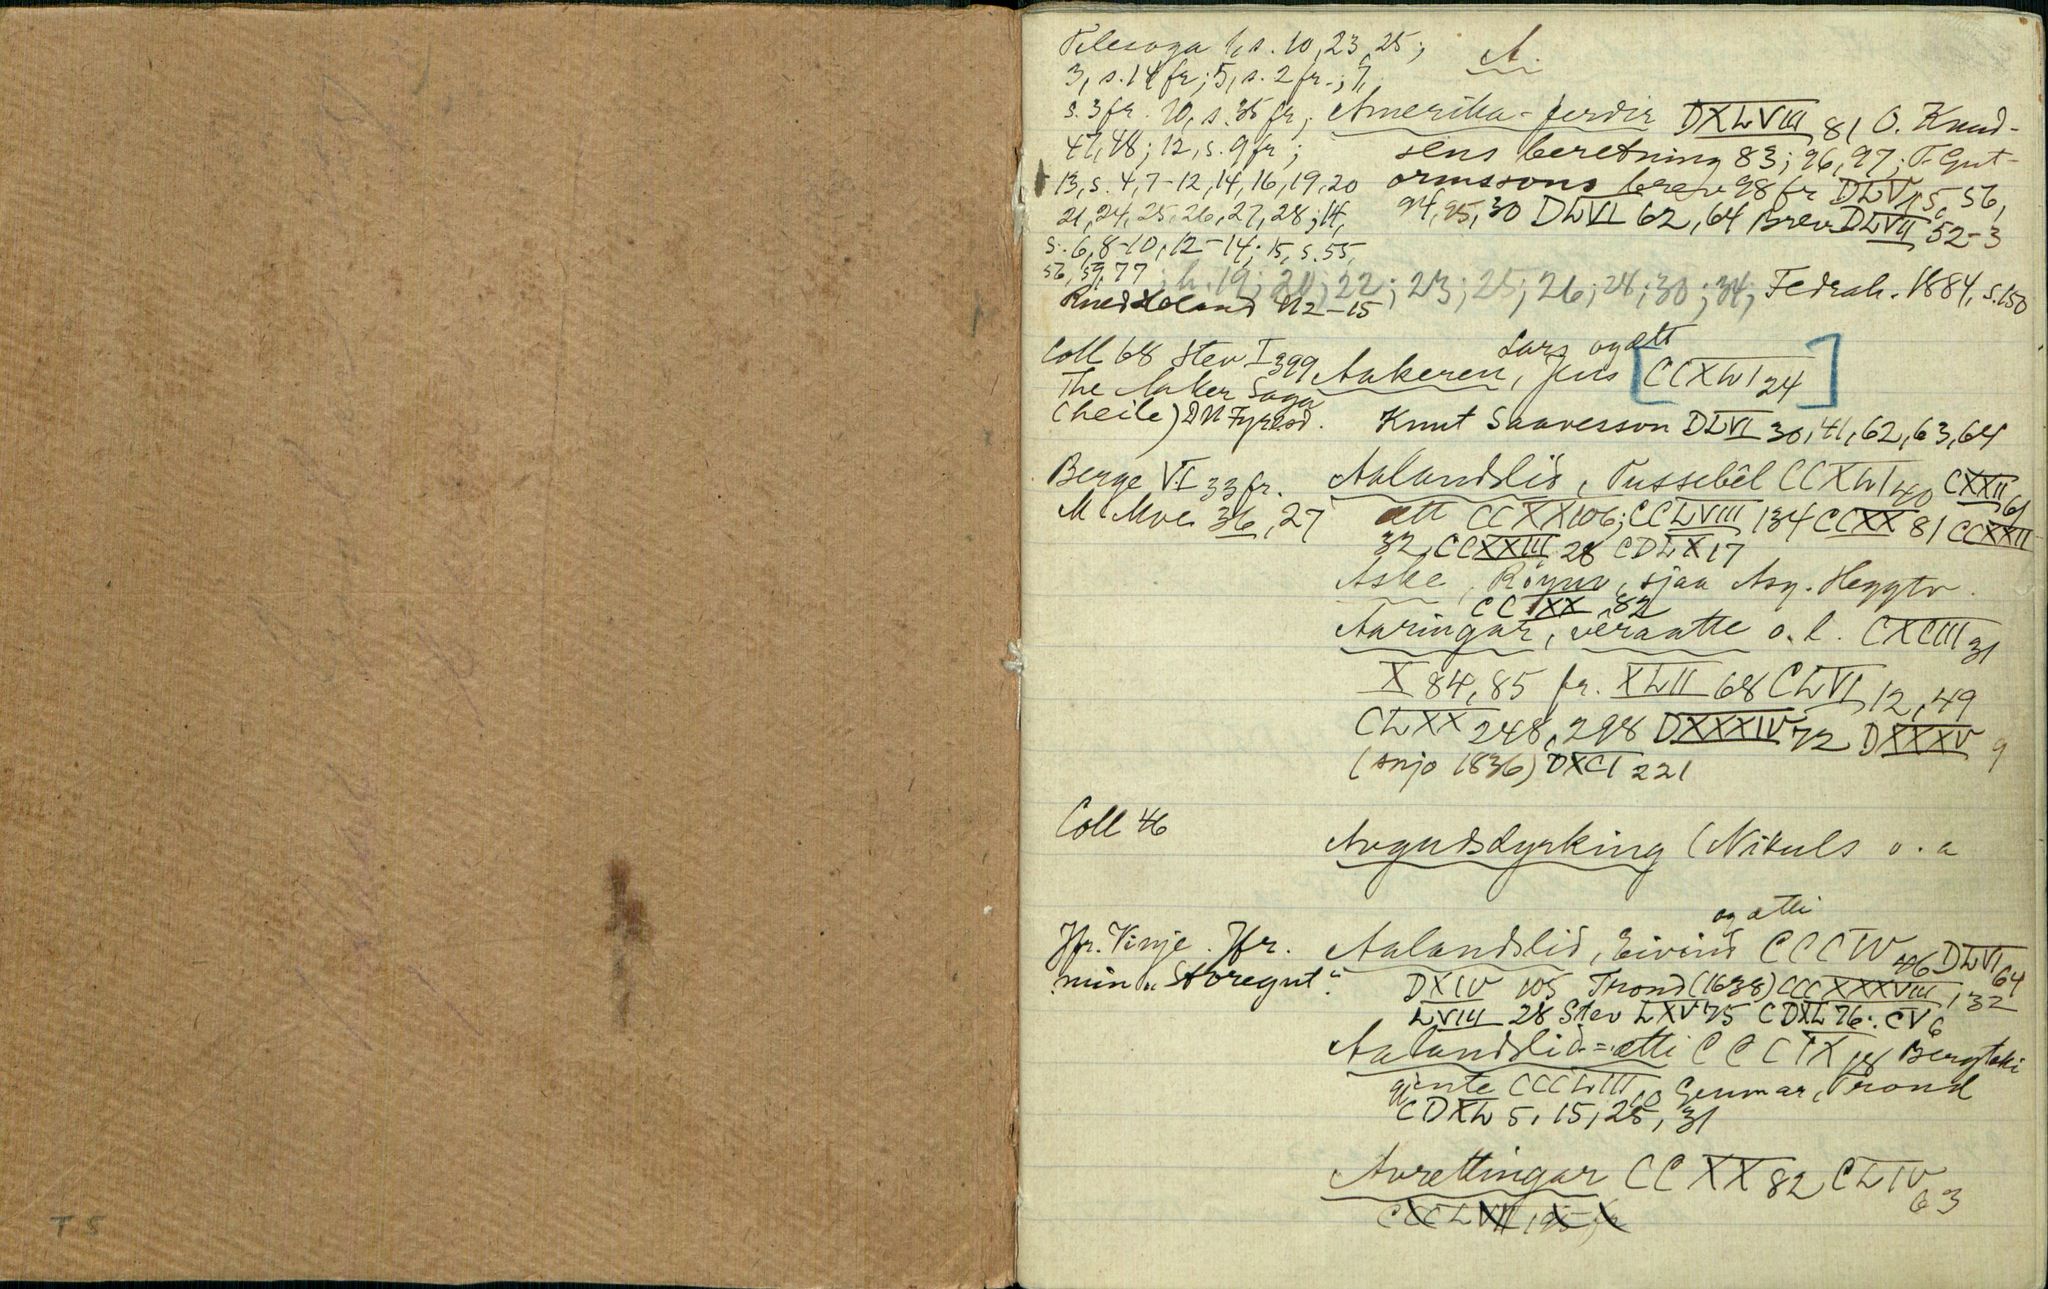 A.
Telesoga 1, s. 10, 23, 25;
3, s. 14 fr; 5, s. 2 fr.; 9,
s. 3 fr. 10, s. 35 fr;
47, 48; 12, s. 9 fr;
13, s. 4, 7-12, 14, 16, 19, 20
21, 24, 25, 26, 27, 28; 14,
s. 6, 8-10, 12-14; 15, s. 55,
56, 59, 77; h. 19; 20; 22; 23; 25; 26; 28; 30; 34;
Amerika-ferdir DXLVIII 81 O. Knud-
sens beretning 83; 96, 97; T. Gut-
ormssons brev 98 fr DLV 56,
94, 95, 30 DLVI 62, 64 Brev DLVII 52-3
Fedrah. 1884, s. 150
12-15
Coll 68 Stev I 399
The Aaker Saga
(heile) DN Fyresd.
Lars og ætt
Aakeren, Jens [CCXLVI 24]
Knut Saavesson DLVI 30, 41, 62, 63, 64
Berge VI 33 fr.
M Moe 36, 27
Aalandslid, Tussebêl CCXLVI 40 CXXII 61
ætt CCXX 106; CCLVIII 134 CCXX 81 CCXXII
32, CCXXIII 28 CDLX 17
Aske, Røynv, sjaa Asg. Heggtv.
CCIXX 82
Aaringar, vêraatte o. l. CXCIII 31
X 84, 85 fr. XLII 68 CLVI 12, 49
CLXX 248, 298 DXXXIV 72 DXXXV 9
(snjo 1836) DXCI 221
Coll 46
Avgudsdyrking (Nikuls o. a
Jfr. Vinje. Jfr.
min "Storegut".
og ætti
Aalandslid, Eivind CCCIV 46 DLVI 64
DXIV 105 Trond (1638) CCCXXXVIII 132
LVIII 28 Stev LXV 75 CDXL 76. CV 6
Aalandslid-ætti CCCIX 18 Bergteki
gjente CCCLIII 10 Gunnar, Trond
CDXL 5, 15, 25, 31
Avrettingar CCXX 82 CLIV 63
T 5